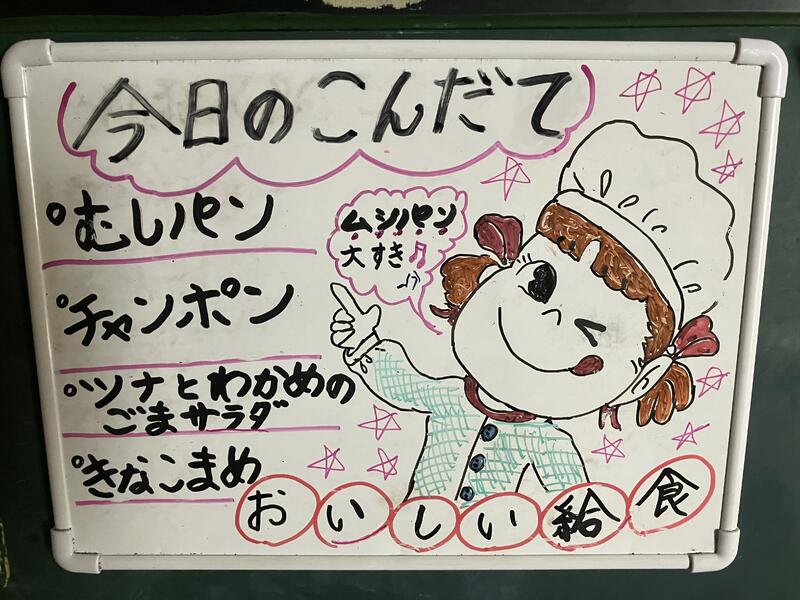 今日のこんだて
°むしパン
ムシパン
大すき♫
♪
°チャンポン
°ツナとわかめの
ごまサラダ
°きなこまめ
おいしい給食